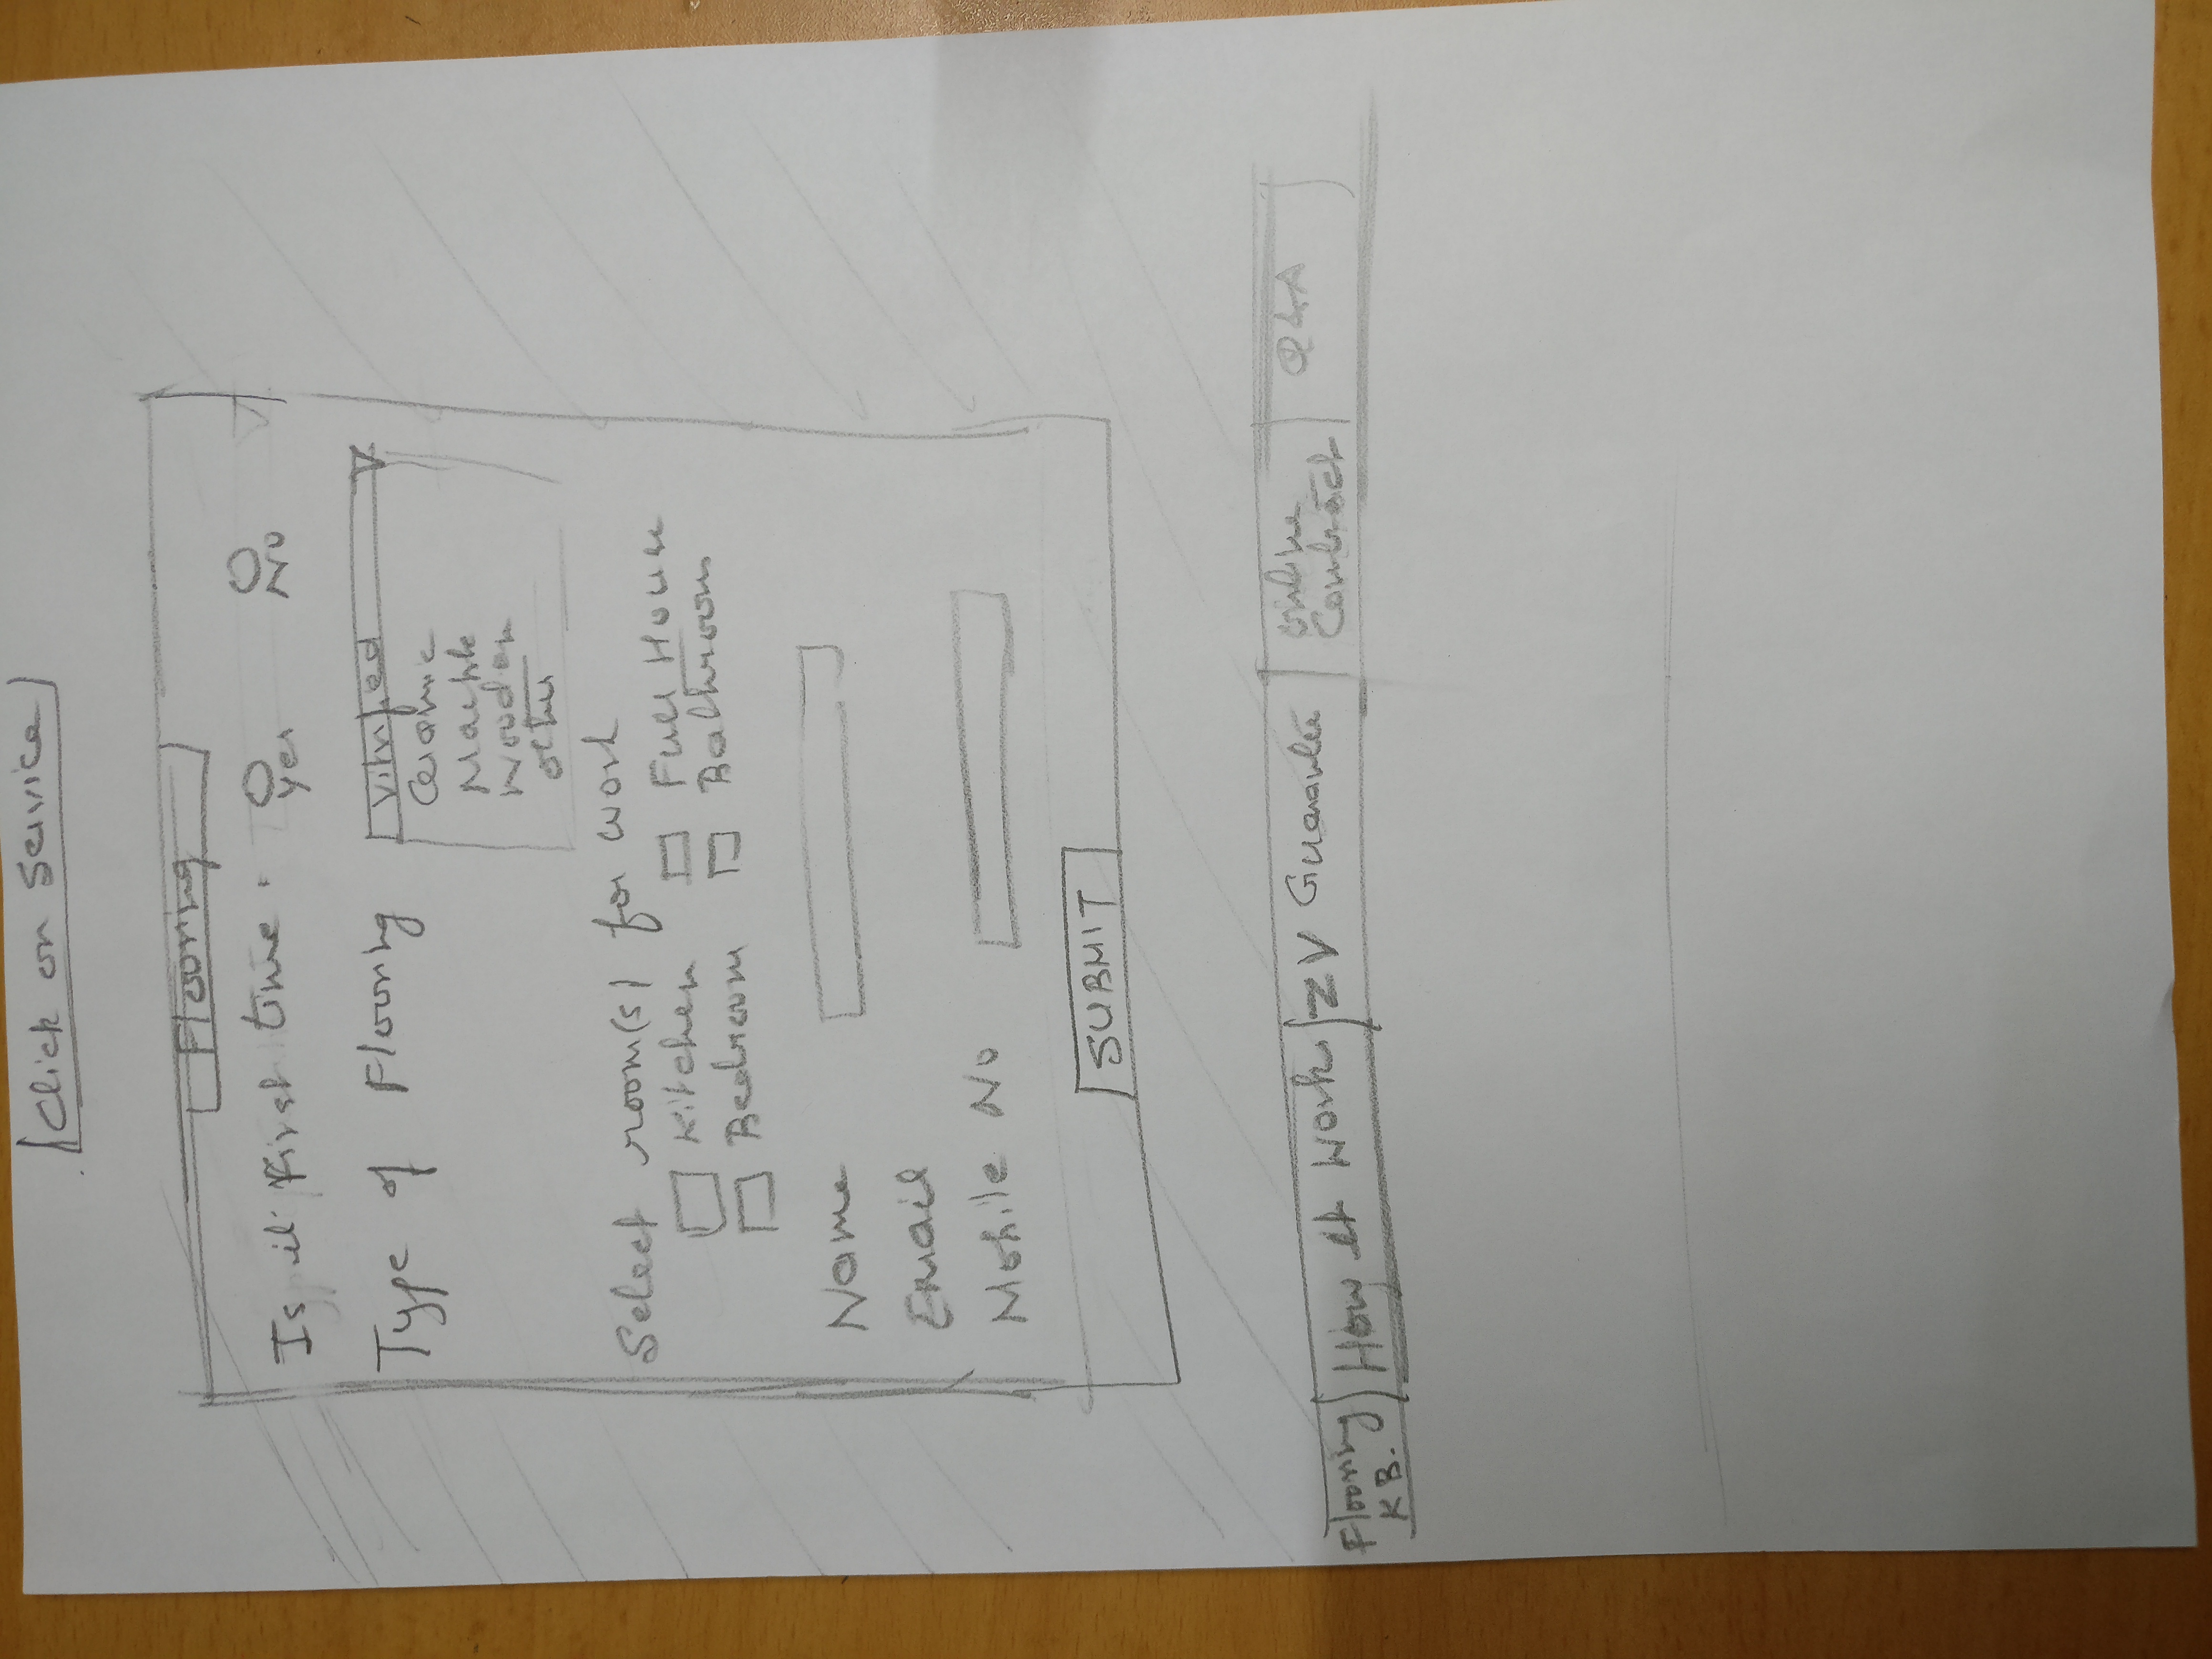 Click on Service
Flooring
Is it first time.
Yes
No
Type of Flooring
Vitrified
Ceramic
Marble
Wooden
other
Select room(s) for work
Kitchen
Full House
Bedroom
Bathroom
Name
Email
Mobile No
SUBMIT
Flooring K.B.
How It Works
ZV Guarantee
Contract
Q&A